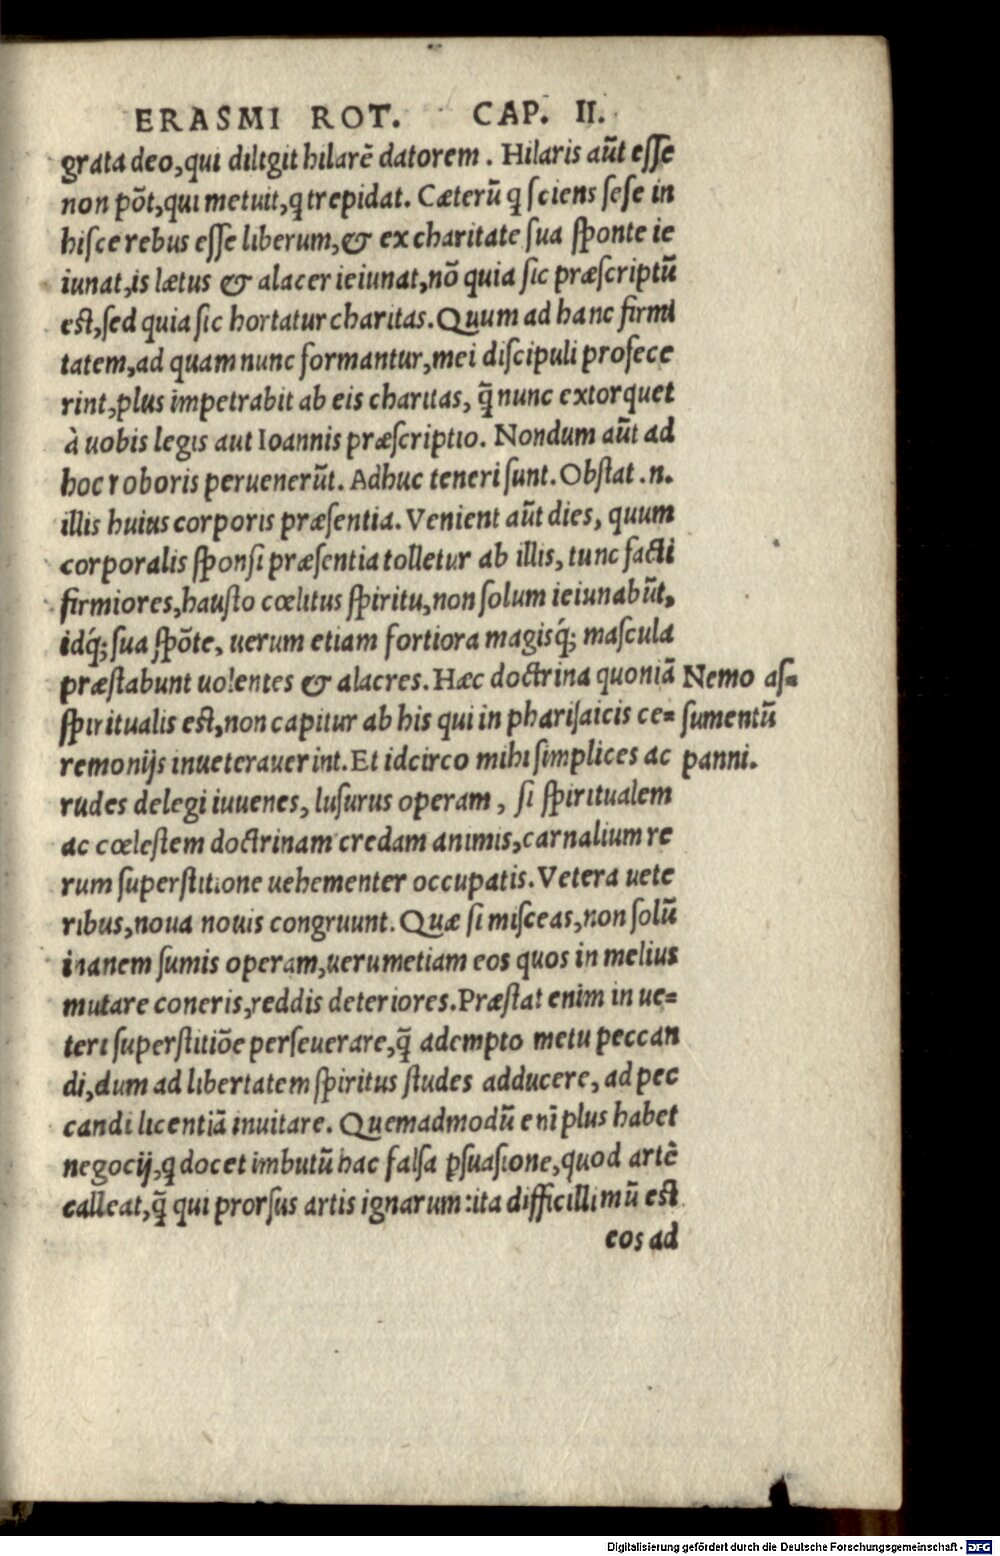 ERASMI ROT. CAP. II.
grata deo, qui diligit hilarē datorem. Hilaris aūt eſſe
non põt, qui metuit, q trepidat. Cæterū q ſciens ſeſe in
hiſce rebus eſſe liberum, & ex charitate ſua ſponte ie
iunat, is lætus & alacer ieiunat, nõ quia ſic præſcriptū
eſt, ſed quia ſic hortatur charitas. Quum ad hanc firmi
tatem, ad quam nunc formantur, mei diſcipuli profece
rint, plus impetrabit ab eis charitas, q̃ nunc extorquet
à uobis legis aut Ioannis præſcriptio. Nondum aūt ad
hoc roboris peruenerūt. Adhuc teneri ſunt. Obſtat .n.
illis huius corporis præſentia. Venient aūt dies, quum
corporalis ſponſi præſentia tolletur ab illis, tunc facti
firmiores, hauſto cœlitus ſpiritu, non ſolum ieiunabūt,
idq́; ſua ſpõte, uerum etiam fortiora magisq́; maſcula
præſtabunt uolentes & alacres. Hæc doctrina quoniã
ſpiritualis eſt, non capitur ab his qui in phariſaicis ce=
remonijs inueterauerint. Et idcirco mihi ſimplices ac
rudes delegi iuuenes, luſurus operam, ſi ſpiritualem
ac cœleſtem doctrinam credam animis, carnalium re
rum ſuperſtitione uehementer occupatis. Vetera uete
ribus, noua nouis congruunt. Quæ ſi miſceas, non ſolū
inanem ſumis operam, uerumetiam eos quos in melius
mutare coneris, reddis deteriores. Præſtat enim in ue=
teri ſuperſtitiõe perſeuerare, q̃ adempto metu peccan
di, dum ad libertatem ſpiritus ſtudes adducere, ad pec
candi licentiã inuitare. Quemadmodū enĩ plus habet
negocij, q docet imbutū hac falſa pſuaſione, quod artē
calleat, q̃ qui prorſus artis ignarum: ita difficillimū eſt
eos ad
Nemo aſ=
ſumentū
panni.
Digitalisierung gefördert durch die Deutsche Forschungsgemeinschaft - DFG